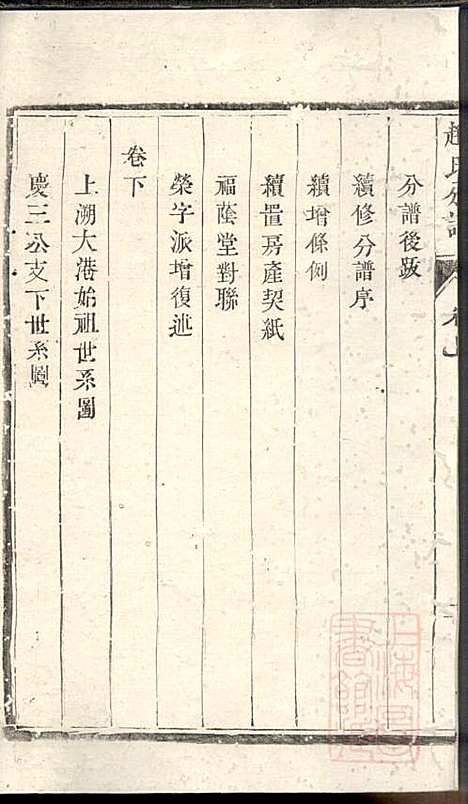 趙氏分譜
分譜後跋
續修分譜序
續增條例
續置房產契紙
福蔭堂對聯
榮字派增復述
卷下
上溯大港始祖世系圖
慶三公支下世系圖